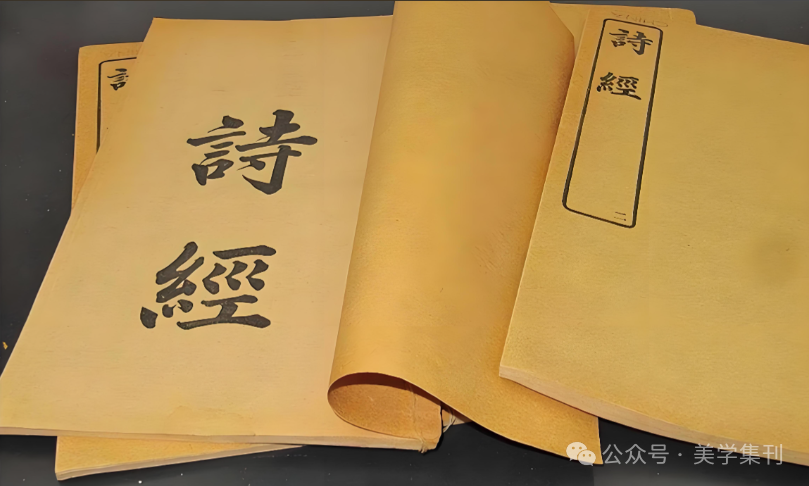 詩
詩經
二
詩經
公众号 · 美学集刊